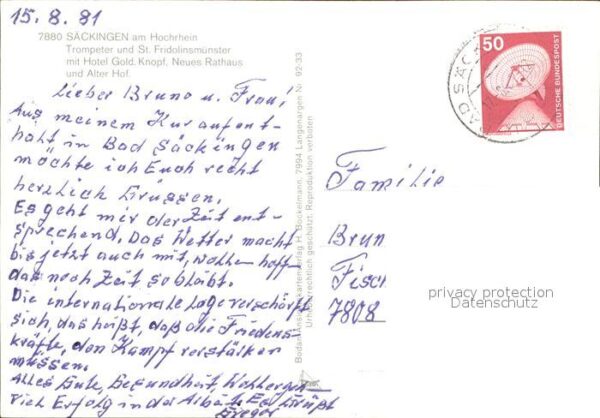 15.8.81
7880 SÄCKINGEN am Hochrhein
Trompeter und St. Fridolinsmünster
mit Hotel Gold. Knopf, Neues Rathaus
und Alter Hof.
Lieber Bruno u. Frau!
Aus meinem Kuraufent-
halt in Bad Säckingen
möchte ich Euch recht
herzlich Grüssen.
Es geht mir der Zeit ent-
sprechend. Das Wetter macht
bis jetzt auch mit, wollen hoff
das noch Zeit so bleibt.
Die internationale Lage verschärft
sich, das heißt, daß die Friedens-
kräfte, den Kampf verstärken
müssen.
Alles Gute, Gesundheit,
viel Erfolg in der Arbeit Es Grüßt
Gregor
Bodan-Ansichtskartenverlag H. Bockelmann, 7994 Langenargen Nr. 92-33
Urheberrechtlich geschützt. Reproduktion verboten
50
DEUTSCHE BUNDESPOST
BAD SÄCK
Familie
Brun
Fisc
7808
privacy protection
Datenschutz